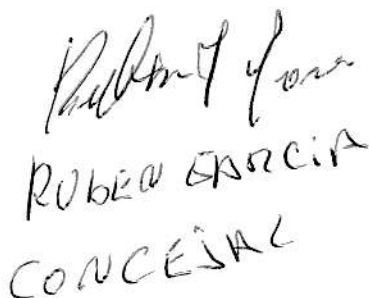 RUBEN GARCIA
CONCEJAL